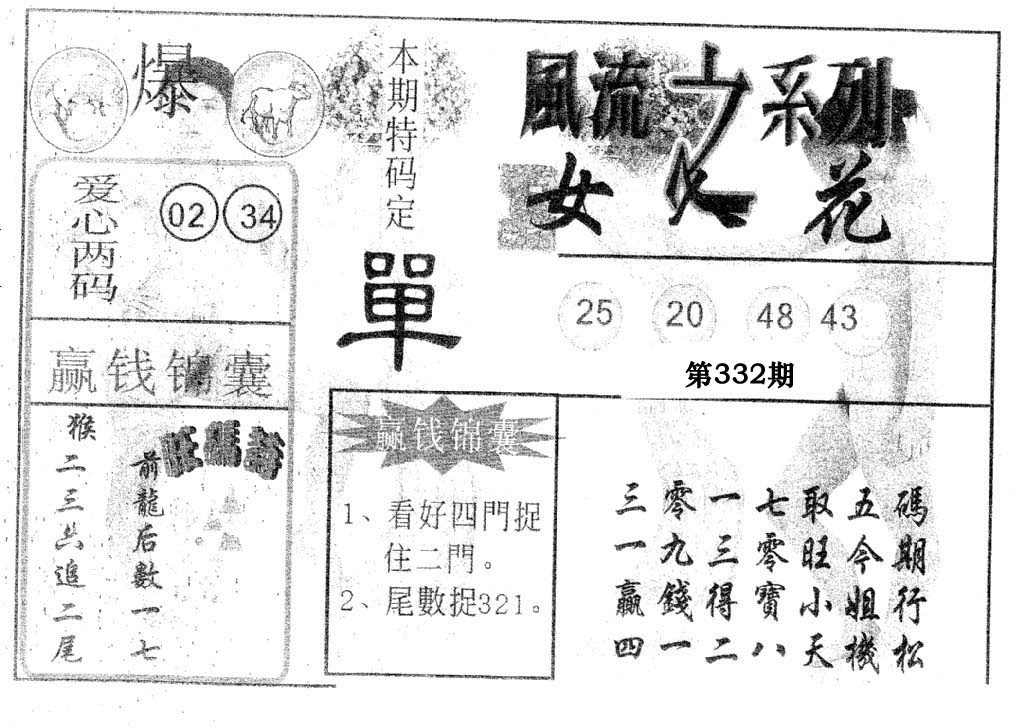 爆
本期特码定
單
風流之系列
女人花
爱心两码
02 34
25 20 48 43
第332期
赢钱锦囊
猴二三共追二尾
前龍后數一七
赢钱锦囊
1、看好四門捉
住二門。
2、尾數捉321。
三零一七取五碼
一九三零旺今期
贏錢得寶小姐行
四一二八天機松